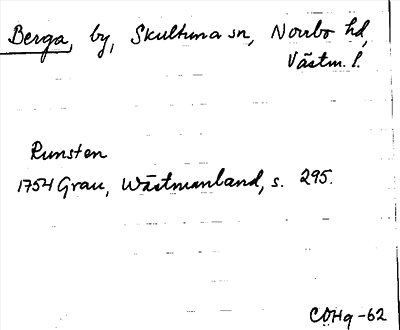 Berga, by, Skultuna sn, Norrbo hd,
Västm. l.
Runsten
1754 Grau, Wästmanland, s. 295.
COHg -62